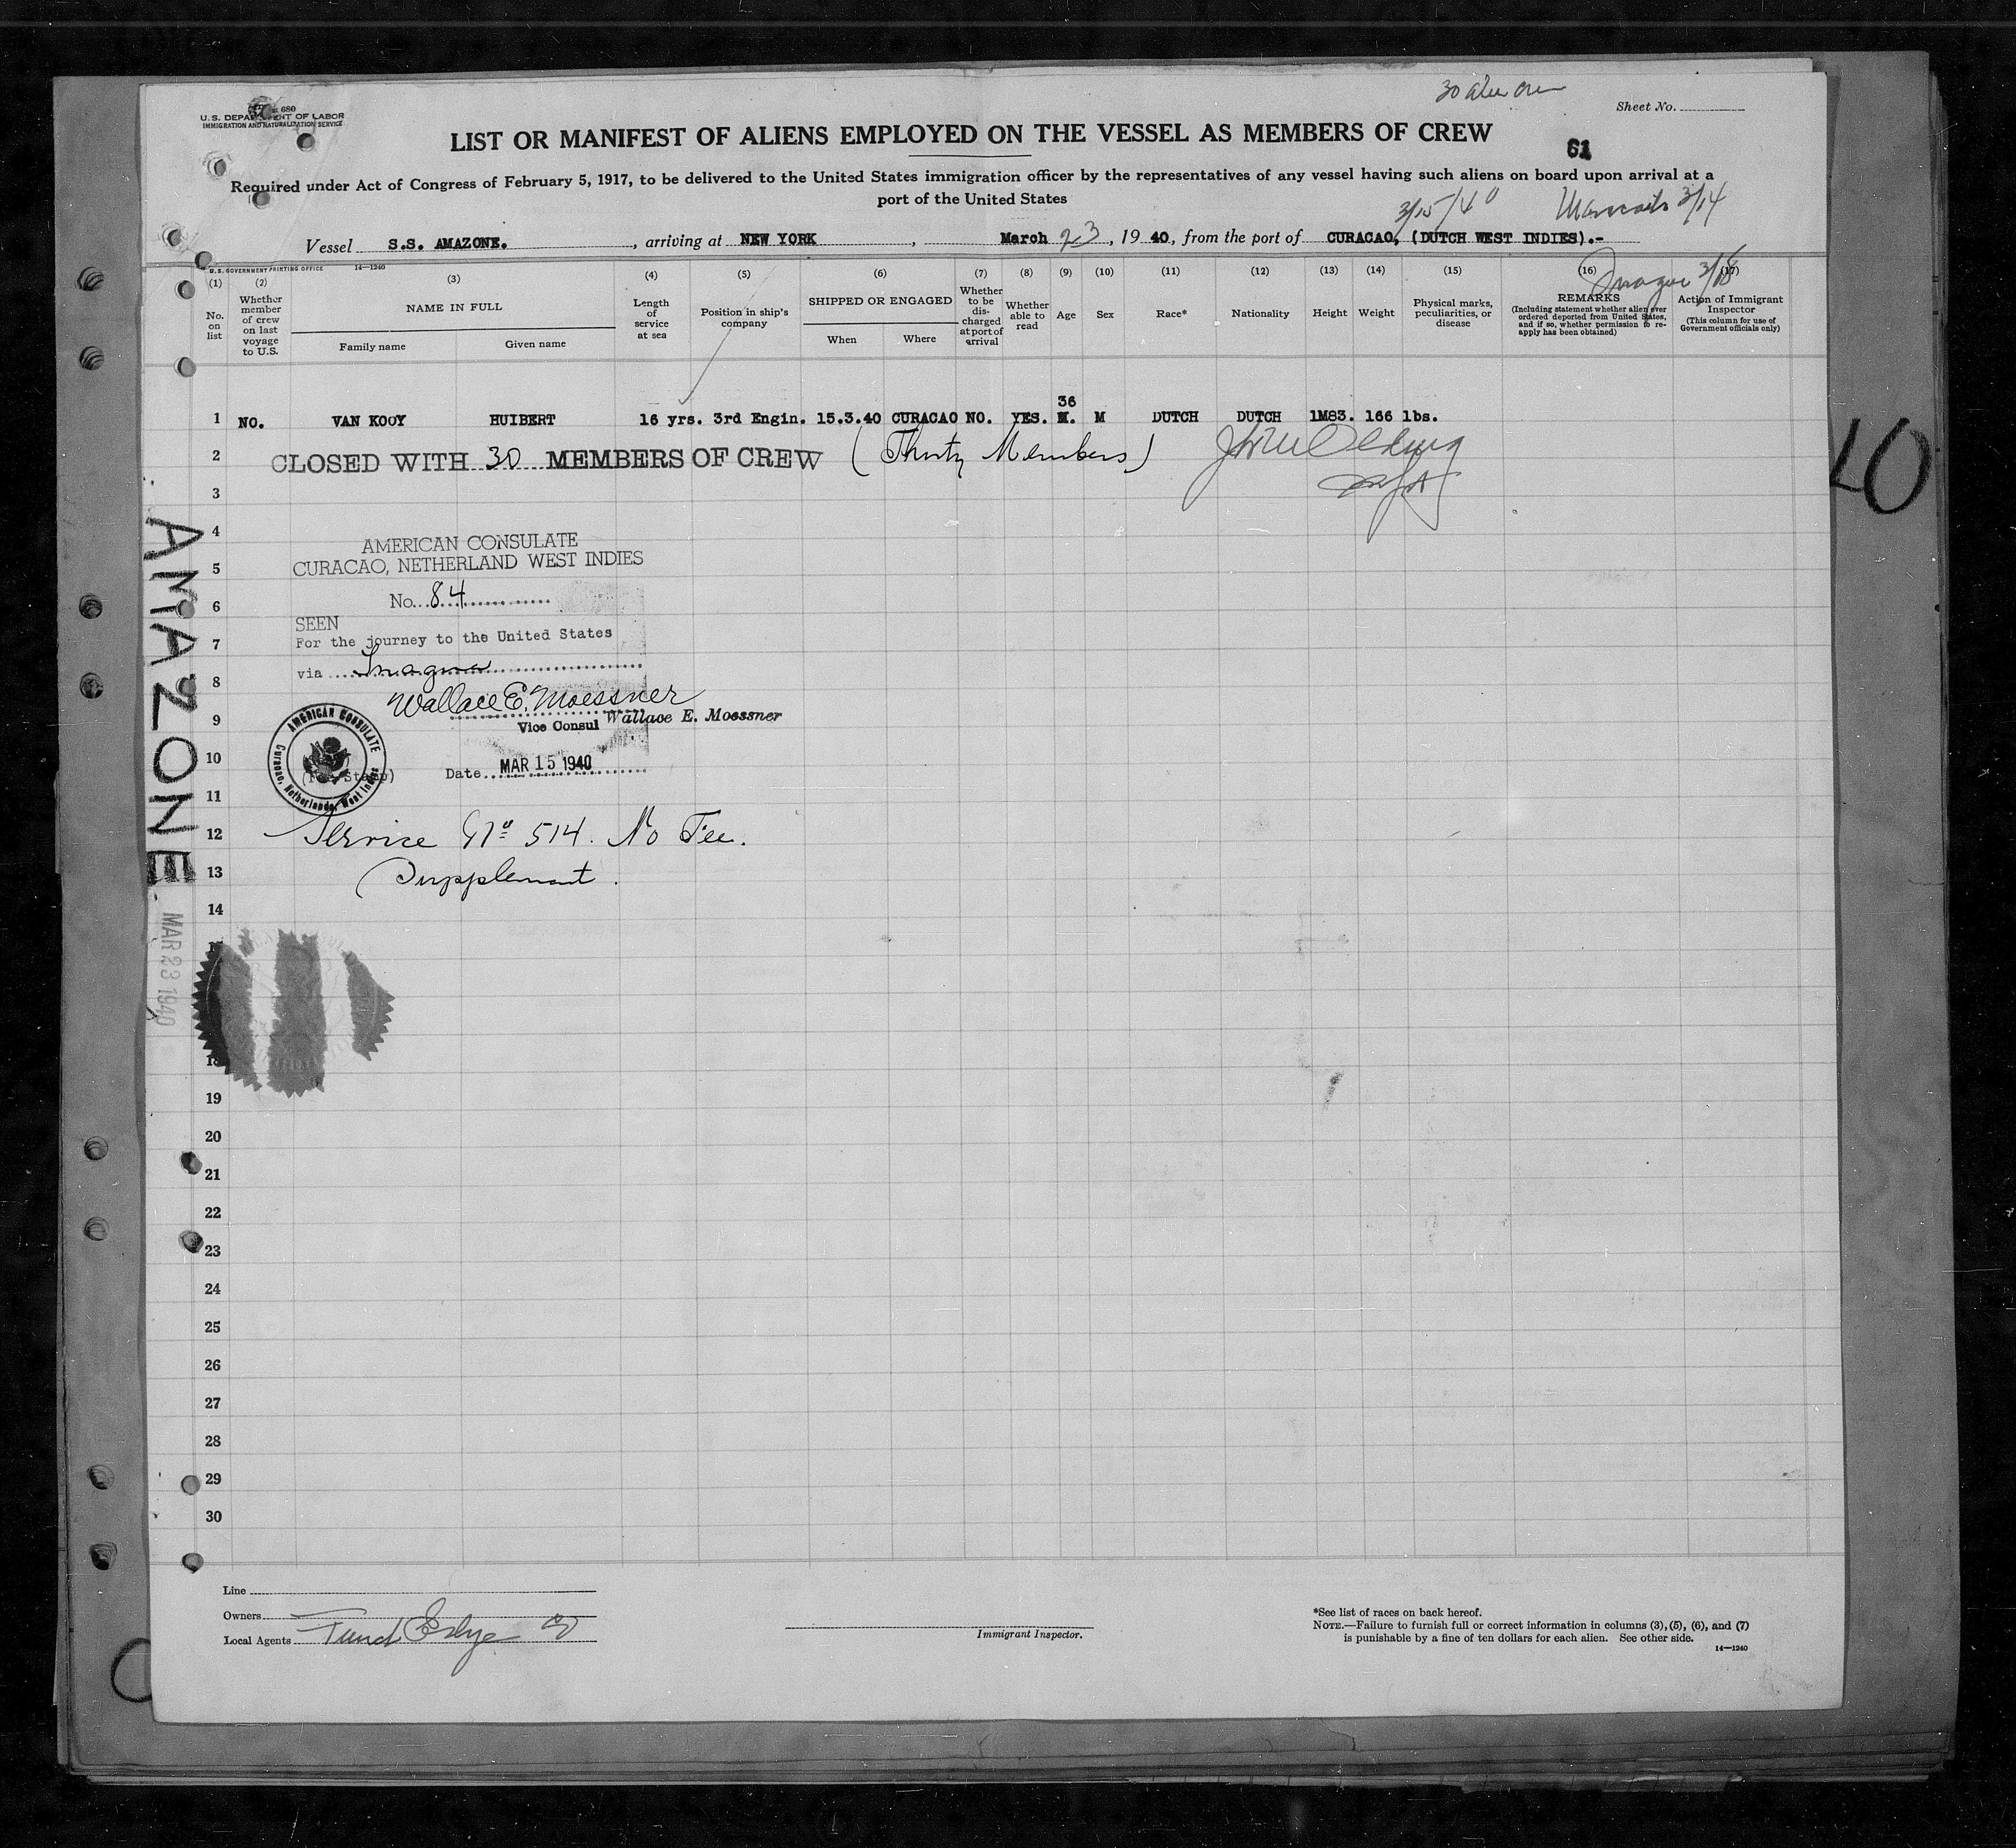 30 alien crew
Sheet No.
680
U. S. DEPARTMENT OF LABOR
IMMIGRATION AND NATURALIZATION SERVICE
LIST OR MANIFEST OF ALIENS EMPLOYED ON THE VESSEL AS MEMBERS OF CREW
61
Required under Act of Congress of February 5, 1917, to be delivered to the United States immigration officer by the representatives of any vessel having such aliens on board upon arrival at a
port of the United States
3/15/40 3/14
Vessel S.S. AMAZONE. , arriving at NEW YORK , March 23, 19 40, from the port of CURACAO, (DUTCH WEST INDIES).-
Inagua 3/18
U. S. GOVERNMENT PRINTING OFFICE 14—1240
(1) (2) (3) (4) (5) (6) (7) (8) (9) (10) (11) (12) (13) (14) (15) (16) (17)
No. on list
Whether member of crew on last voyage to U.S.
NAME IN FULL
Family name
Given name
Length of service at sea
Position in ship's company
SHIPPED OR ENGAGED
When
Where
Whether to be discharged at port of arrival
Whether able to read
Age
Sex
Race*
Nationality
Height
Weight
Physical marks, peculiarities, or disease
REMARKS
(Including statement whether alien ever ordered deported from United States, and if so, whether permission to re-apply has been obtained)
Action of Immigrant Inspector
(This column for use of Government officials only)
36
1 NO. VAN KOOY HUIBERT 16 yrs. 3rd Engin. 15.3.40 CURACAO NO. YES. M. M DUTCH DUTCH 1M83. 166 lbs.
2 CLOSED WITH 30 MEMBERS OF CREW (Thirty Members)
3
4
AMERICAN CONSULATE
5
CURACAO, NETHERLAND WEST INDIES
6
No. 84
SEEN
7
For the journey to the United States
8
via Inagua
Wallace E. Moessner
9
Vice Consul Wallace E. Moessner
AMERICAN CONSULATE
Curanao, Netherlands West Indies
10
(Fee Stamp) Date MAR 15 1940
11
12
Service No 514. No Fee.
13
Supplement.
14
18
19
20
21
22
23
24
25
26
27
28
29
30
AMAZONE.
MAR 23 1940
40
Line
Owners
Local Agents Funch Edye
Immigrant Inspector.
*See list of races on back hereof.
NOTE.—Failure to furnish full or correct information in columns (3), (5), (6), and (7)
is punishable by a fine of ten dollars for each alien. See other side.
14—1240